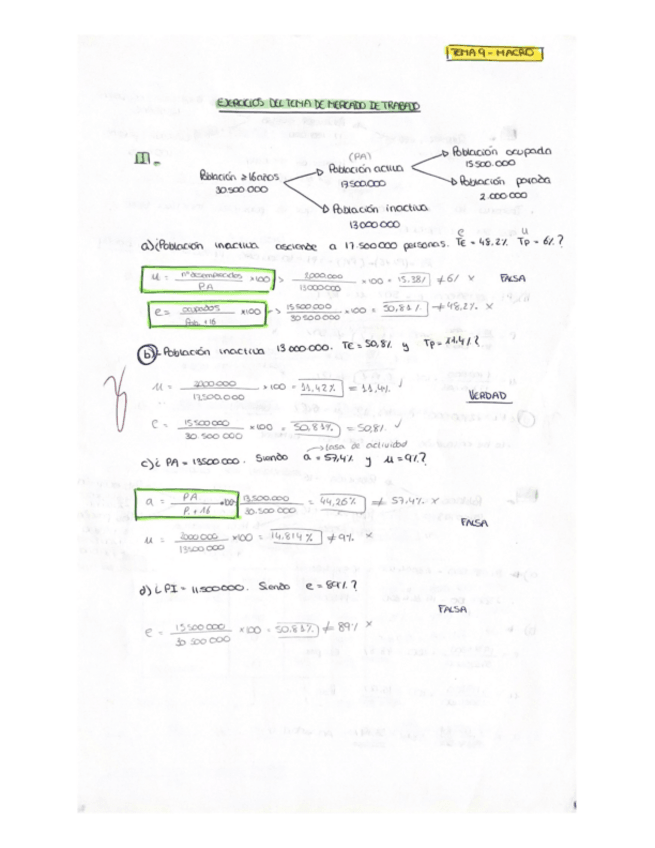 TEMA 9 - MACRO
EJERCICIOS DEL TEMA DE MERCADO DE TRABAJO
1.-
Población ≥16años
30.500.000
(PA)
Población activa
17.500.000
Población ocupada
15.500.000
Población parada
2.000.000
Población inactiva
13.000.000
a) ¿Población inactiva asciende a 17.500.000 personas. TE = 48.2% TP = 6%?
e u
u = nº desempleados / PA × 100 → 2.000.000 / 13.000.000 × 100 = 15.38% ≠ 6% × FALSA
e = ocupados / Pob. +16 × 100 → 15.500.000 / 30.500.000 × 100 = 50,81% ≠ 48,2% ×
b) - Población inactiva 13.000.000. TE = 50,8% y TP = 11.4%?
u = 2.000.000 / 17.500.000 × 100 = 11,42% = 11,4% ✓
VERDAD
e = 15.500.000 / 30.500.000 × 100 = 50,81% = 50,8% ✓
→ tasa de actividad
c) ¿ PA = 13.500.000. Siendo a = 57,4% y u = 9%?
a = PA / P. +16 × 100 13.500.000 / 30.500.000 = 44,26% ≠ 57.4% ×
FALSA
u = 2.000.000 / 13.500.000 × 100 = 14.814% ≠ 9% ×
d) ¿ PI = 11.500.000. Siendo e = 89%?
FALSA
e = 15.500.000 / 30.500.000 × 100 = 50.81% ≠ 89% ×